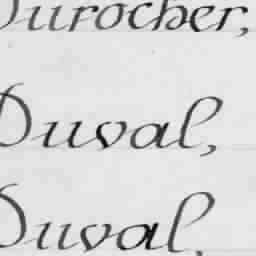 Durocher,
Duval,
Duval,